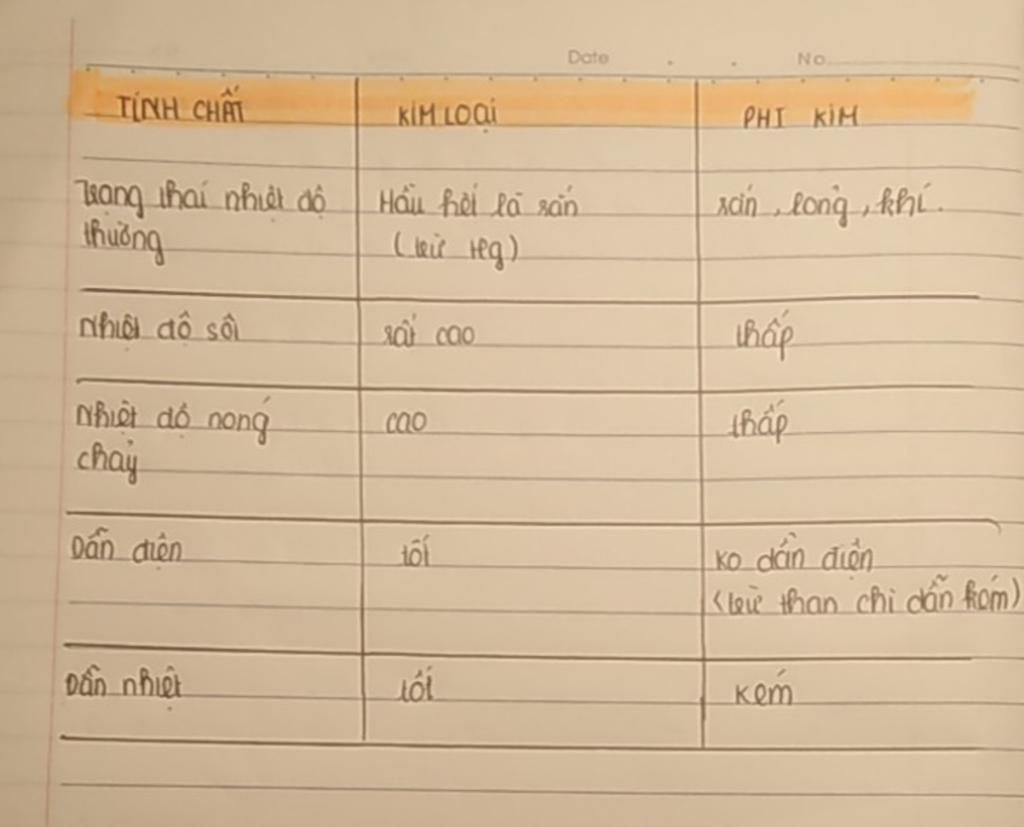 Date . . No
TÍNH CHẤT KIM LOẠI PHI KIM
Trạng thái nhiệt độ Hầu hết là rắn rắn, lỏng, khí.
thường (trừ Hg)
Nhiệt độ sôi rất cao thấp
Nhiệt độ nóng cao thấp
chảy
Dẫn điện tốt ko dẫn điện
(trừ than chì dẫn kém)
Dẫn nhiệt tốt kém